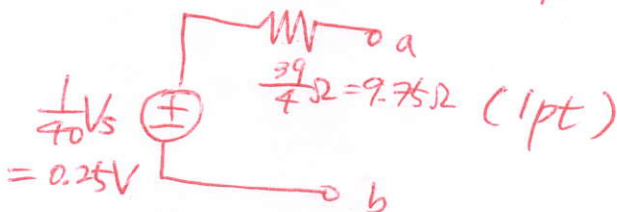 a
39/4 Ω = 9.75Ω (1pt)
1/40 Vs
+
−
= 0.25V
b